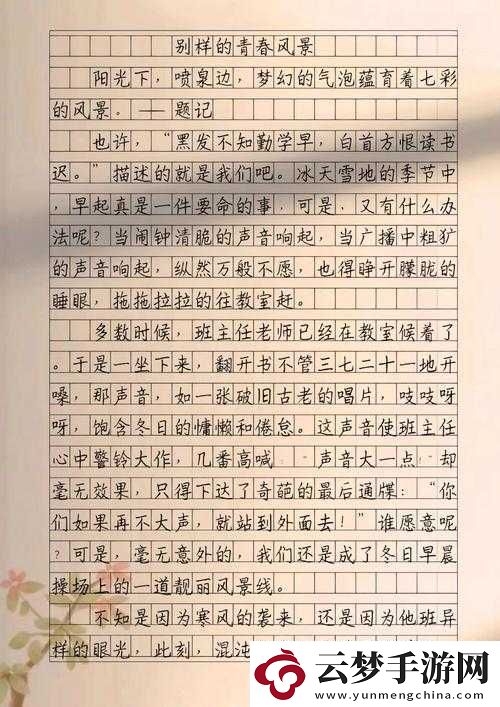 别样的青春风景
阳光下，喷泉边，梦幻的气泡蕴育着七彩
的风景。——题记
也许，“黑发不知勤学早，白首方恨读书
迟。”描述的就是我们吧。冰天雪地的季节中
，早起真是一件要命的事，可是，又有什么办
法呢？当闹钟清脆的声音响起，当广播中粗犷
的声音响起，纵然万般不愿，也得睁开朦胧的
睡眼，拖拖拉拉的往教室赶。
多数时候，班主任老师已经在教室候着了
。于是一坐下来，翻开书不管三七二十一地开
嗓，那声音，如一张破旧古老的唱片，吱吱呀
呀，饱含冬日的慵懒和倦怠。这声音使班主任
心中警铃大作，几番高喊 声音大一点 却
毫无效果，只得下达了奇葩的最后通牒：“你
们如果再不大声，就站到外面去！”谁愿意呢
？可是，毫无意外的，我们还是成了冬日早晨
操场上的一道靓丽风景线。
不知是因为寒风的袭来，还是因为他班异
样的眼光，此刻，混沌
云梦手游网
www.yunmengchina.com